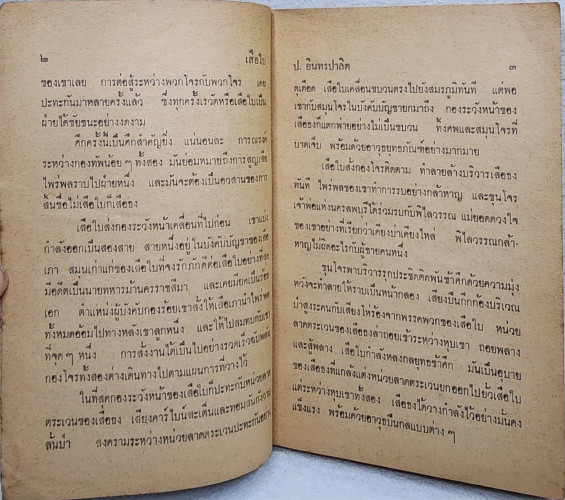 ๒ เสือใบ
ของเขาเลย การต่อสู้ระหว่างพวกโจรกับพวกโจร เคย
ปะทะกันมาหลายครั้งแล้ว ซึ่งทุกครั้งเราวัดหรือเสือใบเป็น
ฝ่ายได้ชัยชนะอย่างงดงาม
ศึกครั้งนี้เป็นศึกสำคัญยิ่ง แน่นอนละ การณรงค์
ระหว่างกองทัพน้อย ๆ ทั้งสอง มันย่อมหมายถึงการสูญเสีย
ไพร่พลราบไปฝ่ายหนึ่ง และมันจะต้องเป็นอวสานของการ
สิ้นชื่อไม่เสือใบก็เสือธง
เสือใบส่งกองระวังหน้าเคลื่อนที่ไปก่อน เขาแบ่ง
กำลังออกเป็นสองสาย สายหนึ่งอยู่ในบังคับบัญชาของเสือ
เภา สมุนเก่าแก่ของเสือใบที่จงรักภักดีต่อเสือใบอย่างที่สุด
มือดีตเป็นนายทหารม้านครราชสีมา และเคยมียศเป็นร้อย
เอก ตำแหน่งผู้บังคับกองร้อยเขาสั่งให้เสือเภานำไพร่พล
ทั้งหมดอ้อมไปทางหลังเขาลูกหนึ่ง และให้ไปสมทบกับเขา
ที่จุด ๆ หนึ่ง การสั่งงานได้เป็นไปอย่างรวดเร็วฉับพลัน
กองโจรทั้งสองต่างเดินทางไปตามแผนการที่วางไว้
ในที่สุดกองระวังหน้าของเสือใบก็ปะทะกับหน่วยลาด
ตระเวนของเสือธง เสียงคาร์ไบน์สะเต็นและทอมสันกังวาน
ลั่นป่า สงครามระหว่างหน่วยลาดตระเวนปะทะกันอย่าง
ป. อินทรปาลิต ๓
ดุเดือด เสือใบเคลื่อนขบวนตรงไปยังสมรภูมิทันที แต่พอ
เขากับสมุนโจรในบังคับบัญชายกมาถึง กองระวังหน้าของ
เสือธงก็แตกพ่ายอย่างไม่เป็นขบวน ทิ้งศพและสมุนโจรที่
บาดเจ็บ พร้อมด้วยอาวุธยุทธภัณฑ์อย่างมากมาย
เสือใบสั่งกองโจรติดตาม ทำลายล้างบริวารเสือธง
ทันที ไพร่พลของเขาทำการรบอย่างกล้าหาญ และขุนโจร
เจ้าพ่อแห่งนครลพบุรีได้ร่วมรบกับพิไลวรรณ แม่ยอดดวงใจ
ของเขาอย่างที่เรียกว่าเคียงบ่าเคียงไหล่ พิไลวรรณกล้า-
หาญไม่ผิดอะไรกับผู้ชายคนหนึ่ง
ขุนโจรพาบริวารรุกประชิดติดพันข้าศึกด้วยความมุ่ง
หวังจะทำลายให้ราบเป็นหน้ากลอง เสียงปืนกึกก้องบริเวณ
ป่าสูงระคนกับเสียงโห่ร้องจากพรรคพวกของเสือใบ หน่วย
ลาดตระเวนของเสือธงล่าถอยเข้าระหว่างหุบเขา ถอยพลาง
และสู้พลาง เสือใบกำลังหลงกลยุทธข้าศึก มันเป็นอุบาย
ของเสือธงที่แกล้งแต่งหน่วยลาดตระเวนยกออกไปยั่วเสือใบ
แต่ระหว่างหุบเขาทั้งสอง เสือธงได้วางกำลังไว้อย่างมั่นคง
แข็งแรง พร้อมด้วยอาวุธปืนกลแบบต่าง ๆ